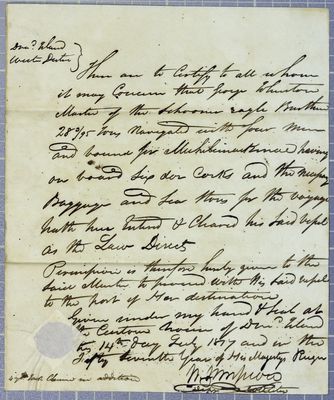 Drumd. Island
These are to Certify to all whom
it may Concern that George
Master of the Schooner Eagle Burthen
28 3/95 Tons Navigated with four Men
and bound for Michilimackinac having
on board Six doz Corks and the necessary
Baggage and Sea Stores for the voyage
hath here Entered & Cleared his said vessel
as the Law Directs
Permission is therefore hereby given to the
said Master to proceed with His Said vessel
to the port of Her destination
Given under my hand & Seal at
the Custom House of Drumd. Island
this 14th Day July 1817 and in the
Fifty Seventh Year of His Majestys Reign
Collector